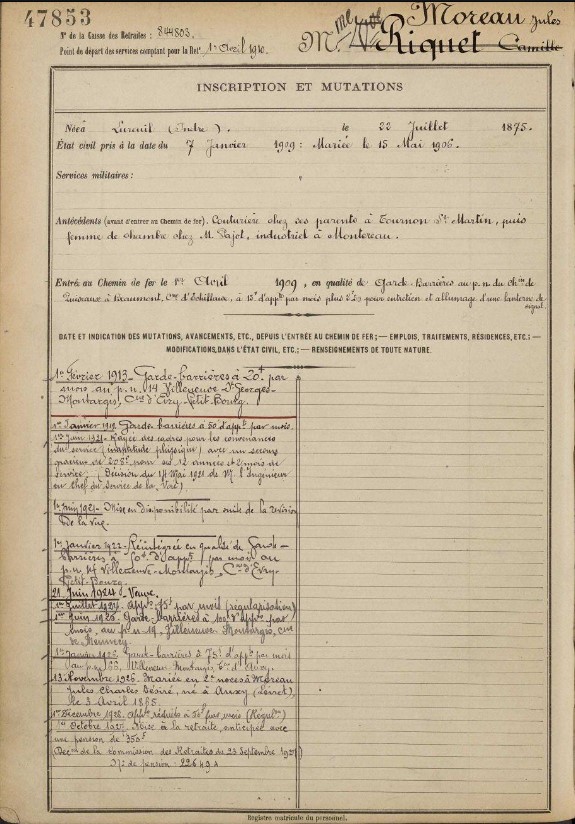 47853
N° de la Caisse des Retraites : 844803.
Point de départ des services comptant pour la Ret^te 1^er Avril 1910.
Moreau Jules
M^me V^ve Riquet Camille
INSCRIPTION ET MUTATIONS
Née à Lureuil (Indre). le 22 Juillet 1875.
État civil pris à la date du 7 Janvier 1909 : Mariée le 15 Mai 1906.
Services militaires :
Antécédents (avant d'entrer au Chemin de fer). Couturière chez ses parents à Tournon S^t Martin, puis
femme de chambre chez M. Pajot, industriel à Montereau.
Entrée au Chemin de fer le 1^er Avril 1909, en qualité de Garde-Barrières au p.n. du ch^in de
Puiseaux à Beaumont, C^ne d'Echilleuse, à 15^f d'app^ts par mois plus pour entretien et allumage d'une lanterne de
signal.
DATE ET INDICATION DES MUTATIONS, AVANCEMENTS, ETC., DEPUIS L'ENTRÉE AU CHEMIN DE FER ; — EMPLOIS, TRAITEMENTS, RÉSIDENCES, ETC. ; —
MODIFICATIONS DANS L'ÉTAT CIVIL, ETC. ; — RENSEIGNEMENTS DE TOUTE NATURE.
1^er Février 1913 - Garde-barrières à 20^f par
mois au p.n. 14 Villeneuve-S^t-Georges-
Montargis, C^ne d'Evry-Petit-Bourg.
1^er Janvier 1919. Garde-barrières à 50^f d'app^ts par mois.
1^er Juin 1921 - Rayée des cadres pour les convenances
du service (inaptitude physique) avec un secours
gracieux de pour ses 12 années et 2 mois de
service; (Décision du 14 Mai 1921 de M^r l'Ingénieur
en Chef du Service de la Voie)
1^er Juin 1921 - Mise en disponibilité par suite de la revision
de la vue.
1^er Janvier 1922 - Réintégrée en qualité de Garde-
barrières à d'app^ts par mois au
p.n. 14 Villeneuve-Montargis, C^ne d'Evry-
Petit-Bourg.
21 Juin 1924 - Veuve.
1^er Juillet 1924. app^ts 75^f par mois (régularisation)
1^er Juin 1925. Garde-barrières à 100^f d'app^ts par
mois, au p.n. 19, Villeneuve-Montargis, C^ne
de Mennecy.
1^er Janvier 1926. Garde-barrières à 75^f d'app^ts par mois
au p.n. Villeneuve Montargis, C^ne d'Auxy.
13 Novembre 1926. Mariée en 2^es noces à Moreau
Jules Charles Désiré, né à Auxy (Loiret),
le 3 Avril 1865.
1^er Décembre 1926. app^ts réduits à 50^f par mois (Régul^on)
1^er Octobre 1927. Mise à la retraite anticipée avec
une pension de 350^f
(Déc^on de la Commission des Retraites du 23 Septembre 1927)
N° de pension : 22649A
Registre matricule du personnel.